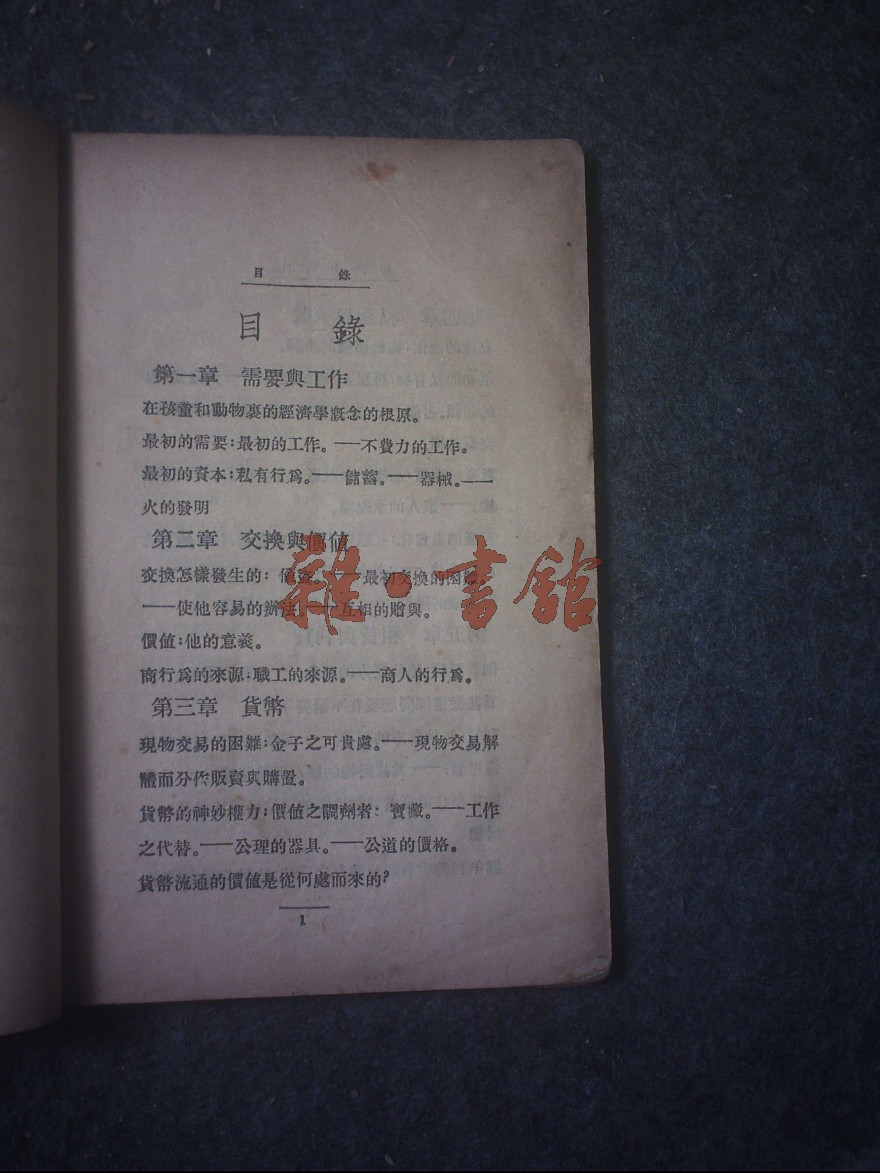 目 錄
目 錄
第一章 需要與工作
在孩童和動物裏的經濟學概念的根原。
最初的需要:最初的工作。——不費力的工作。
最初的資本:私有行爲。——儲蓄。——器械。——
火的發明
第二章 交換與價値
交換怎樣發生的: 偷盜。——最初交換的困難。
——使他容易的辦法。——互相的贈與。
價値:他的意義。
商行爲的來源:職工的來源。——商人的行爲。
第三章 貨幣
現物交易的困難:金子之可貴處。——現物交易解
體而分作販賣與購置。
貨幣的神妙權力:價値之調劑者: 寶藏。——工作
之代替。——公理的器具。——公道的價格。
貨幣流通的價値是從何處而來的?
1
雜·書館